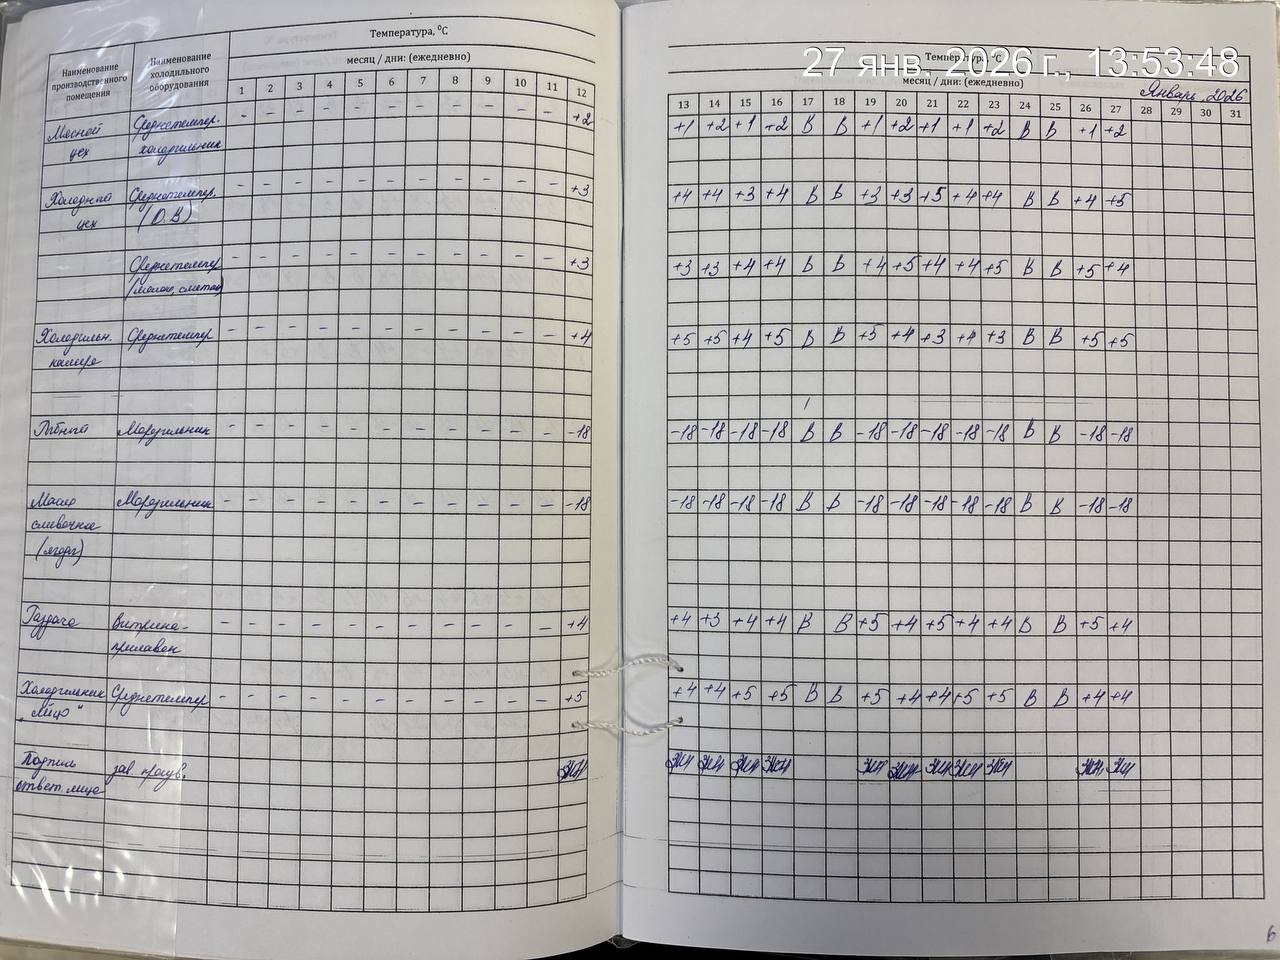 Температура, °С
Наименование производственного помещения
Наименование холодильного оборудования
месяц / дни: (ежедневно)
1 2 3 4 5 6 7 8 9 10 11 12
Мясной цех
Среднетемпер. холодильник
- - - - - - - - - - - +2
Холодный цех
Среднетемпер. (О.В)
- - - - - - - - - - - +3
Среднетемпер (молоко, сметана)
- - - - - - - - - - - +3
Холодильн. камера
Среднетемпер
- - - - - - - - - - - +4
Рыбный
Морозильник
- - - - - - - - - - - -18
Масло сливочное (ягоды)
Морозильник
- - - - - - - - - - - -18
Раздача
Витрина-прилавок
- - - - - - - - - - - +4
Холодильник „Яйцо"
Среднетемпер
- - - - - - - - - - - +5
Подпись ответ. лица
зав. произв.
27 янв. 2026 г., 13:53:48
Температура, °С
месяц / дни: (ежедневно)
Январь, 2026
13 14 15 16 17 18 19 20 21 22 23 24 25 26 27 28 29 30 31
+1 +2 +1 +2 В В +1 +2 +1 +1 +2 В В +1 +2
+4 +4 +3 +4 В В +3 +3 +5 +4 +4 В В +4 +5
+3 +3 +4 +4 В В +4 +5 +4 +4 +5 В В +5 +4
+5 +5 +4 +5 В В +5 +4 +3 +4 +3 В В +5 +5
-18 -18 -18 -18 В В -18 -18 -18 -18 -18 В В -18 -18
-18 -18 -18 -18 В В -18 -18 -18 -18 -18 В В -18 -18
+4 +3 +4 +4 В В +5 +4 +5 +4 +4 В В +5 +4
+4 +4 +5 +5 В В +5 +4 +4 +5 +5 В В +4 +4
6